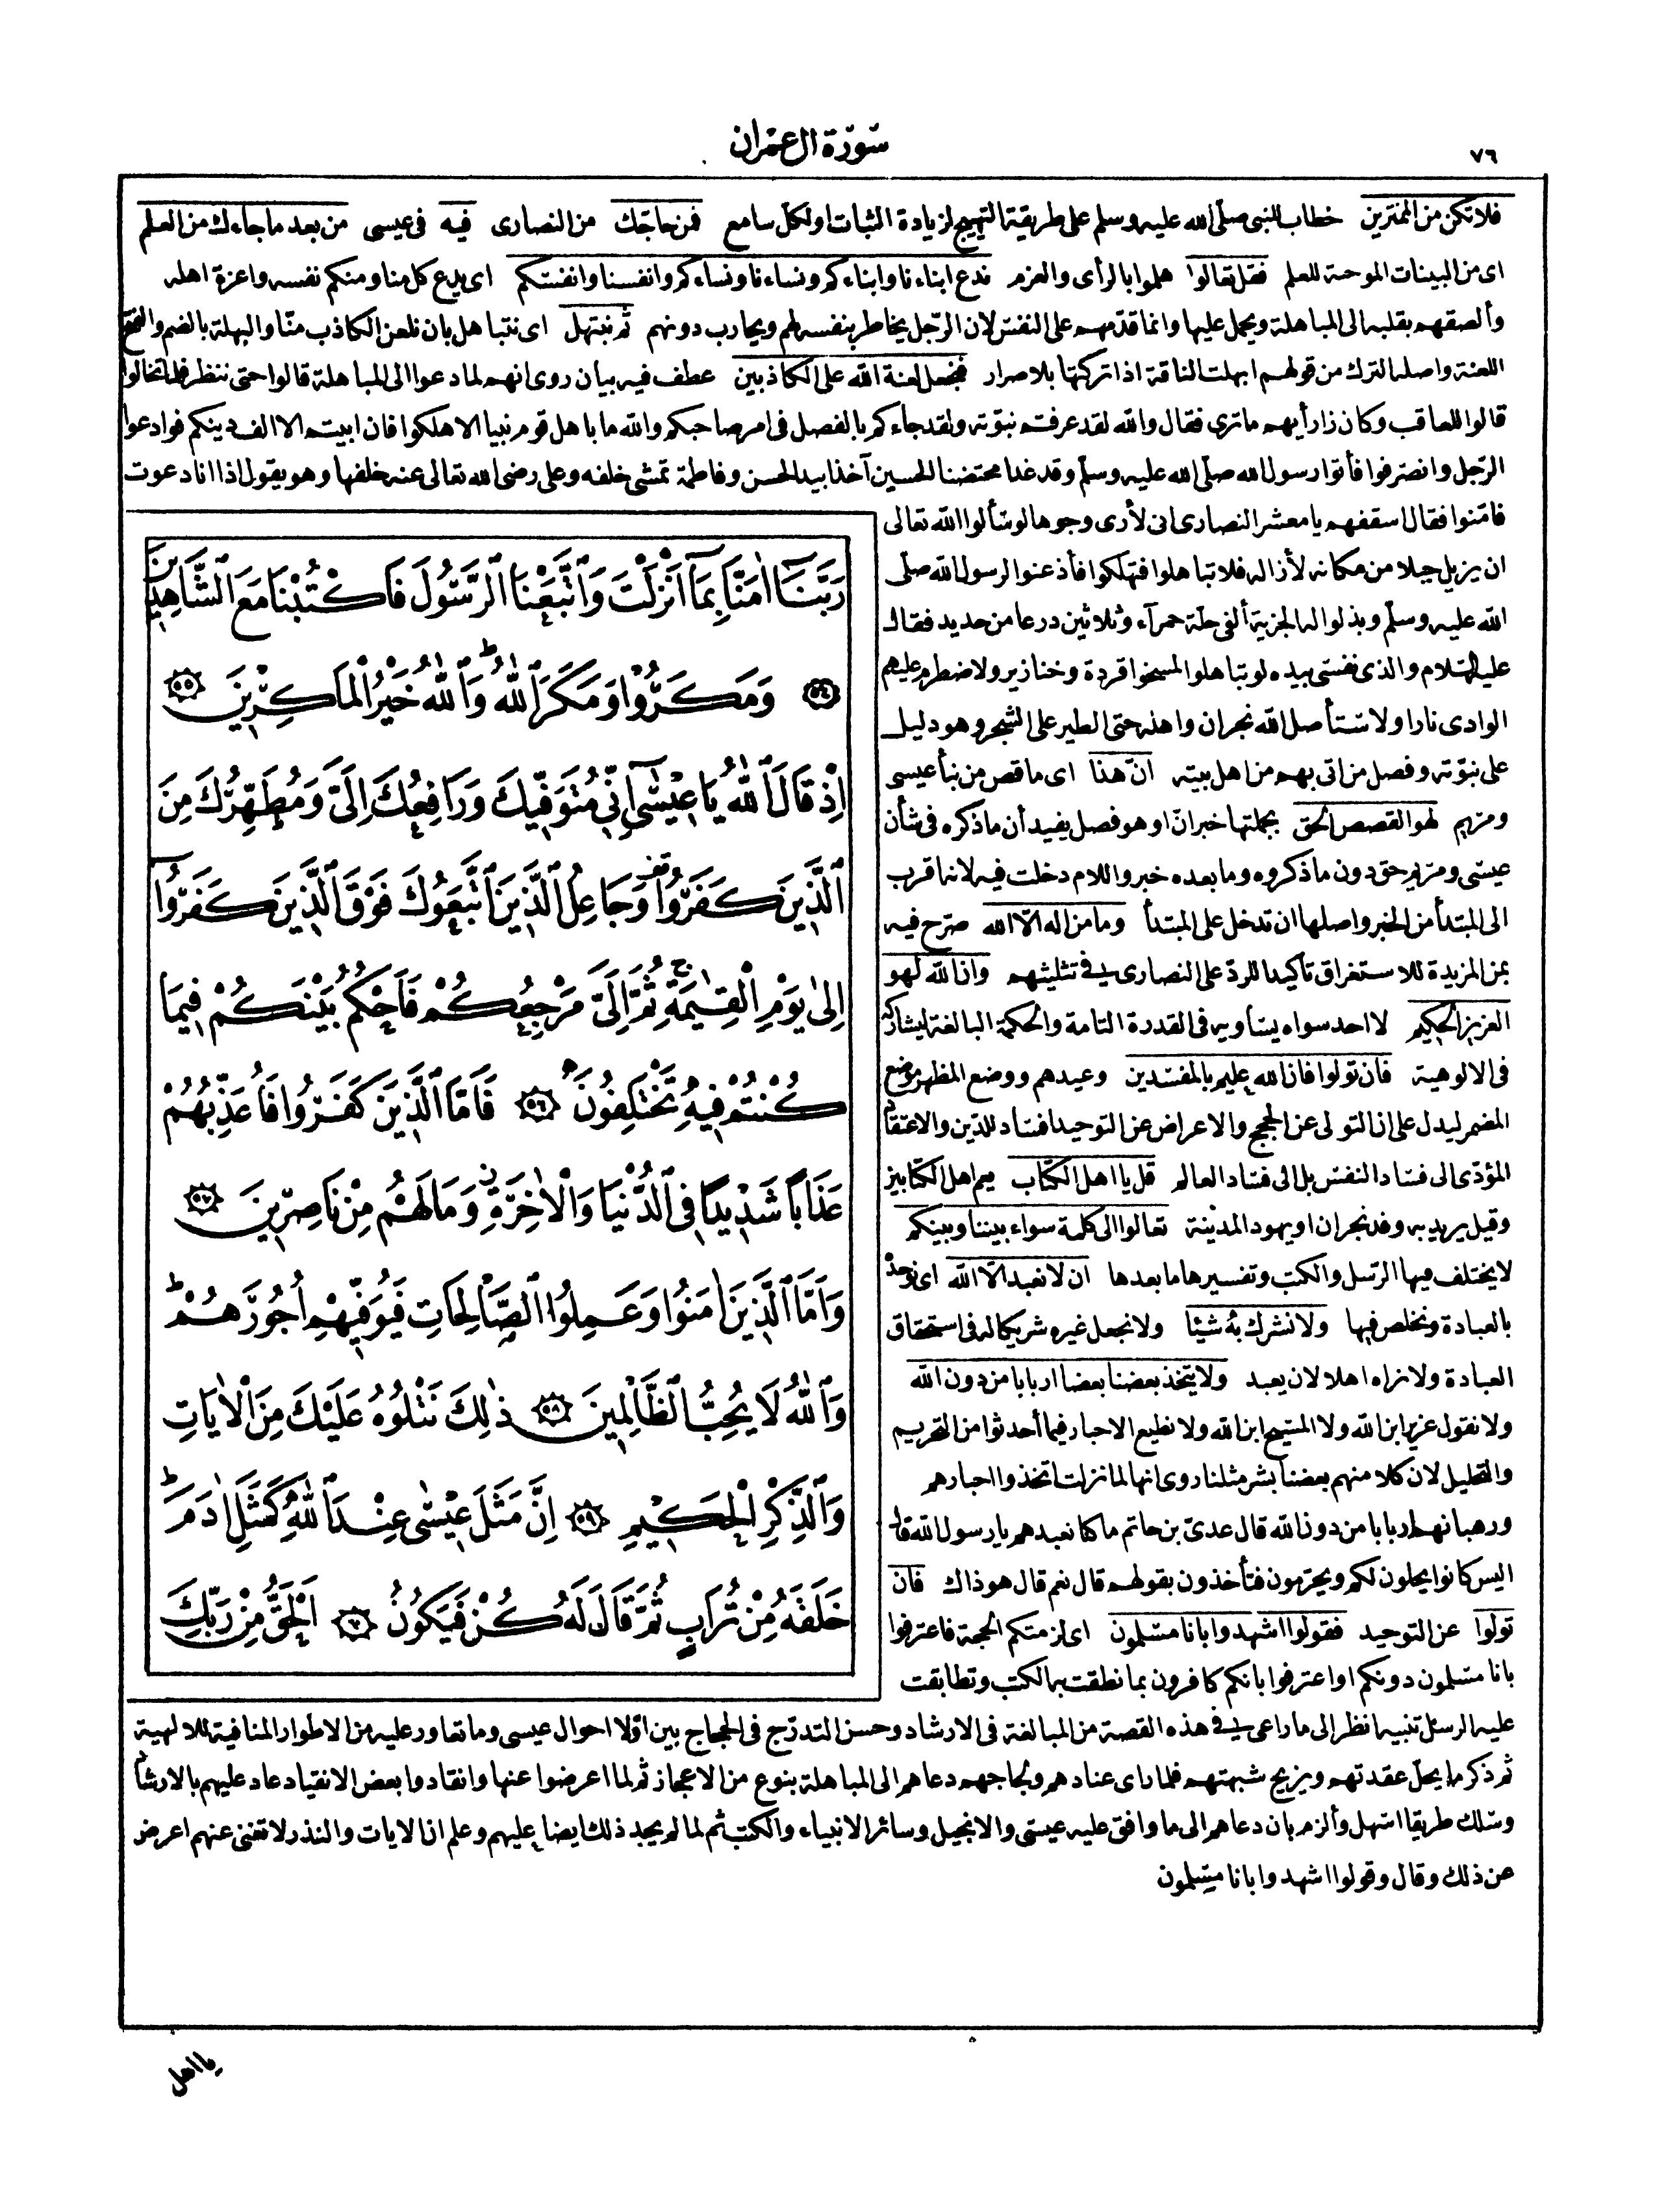 ٧٦
سورة ال عمران
فلا تكن من الممترين خطاب للنبى صلى الله عليه وسلم على طريقة التهييج لزيادة الثبات او لكل سامع فمن حاجك من النصارى فيه فى عيسى من بعد ما جاءك من العلم
اى من البينات الموجبة للعلم فقل تعالوا هلموا بالرأى والعزم ندع ابناءنا وابناءكم ونساءنا ونساءكم وانفسنا وانفسكم اى يدع كل منا ومنكم نفسه واعزة اهله
وألصقهم بقلبه الى المباهلة ويحمل عليها وانما قدمهم على النفس لان الرجل يخاطر بنفسه لهم ويحارب دونهم ثم نبتهل اى نتباهل بان نلعن الكاذب منا والبهلة بالضم والفتح
اللعنة واصله الترك من قولهم ابهلت الناقة اذا تركتها بلا صرار فنجعل لعنة الله على الكاذبين عطف فيه بيان روى انهم لما دعوا الى المباهلة قالوا حتى ننظر فلما تخالوا
قالوا للعاقب وكان ذا رأيهم ما ترى فقال والله لقد عرفتم نبوته ولقد جاءكم بالفصل فى امر صاحبكم والله ما باهل قوم نبيا الا هلكوا فان ابيتم الا الف دينكم فوادعوا
الرجل وانصرفوا فأتوا رسول الله صلى الله عليه وسلم وقد غدا محتضنا الحسين آخذا بيد الحسن وفاطمة تمشى خلفه وعلى رضى الله تعالى عنه خلفها وهو يقول اذا انا دعوت
فامنوا فقال اسقفهم يا معشر النصارى انى لأرى وجوها لو سألوا الله تعالى
ان يزيل جبلا من مكانه لأزاله فلا تباهلوا فتهلكوا فأذعنوا لرسول الله صلى
الله عليه وسلم وبذلوا له الجزية ألفى حلة حمرآء وثلاثين درعا من حديد فقال
عليه السلام والذى نفسى بيده لو تباهلوا لمسخوا قردة وخنازير ولاضطرم عليهم
الوادى نارا ولاستأصل الله نجران واهله حتى الطير على الشجر وهو دليل
على نبوته وفضل من اتى بهم من اهل بيته ان هذا اى ما قص من نبأ عيسى
ومريم لهو القصص الحق بجملتها خبر ان او هو فصل يفيد أن ما ذكره فى شأن
عيسى ومريم حق دون ما ذكروه وما بعده خبر واللام دخلت فيه لانه اقرب
الى المبتدأ من الخبر واصلها ان تدخل على المبتدأ وما من اله الا الله صرح فيه
بمن المزيدة للاستغراق تأكيدا للرد على النصارى فى تثليثهم وان الله لهو
العزيز الحكيم لا احد سواه يساويه فى القدرة التامة والحكمة البالغة ليشاركه
فى الالوهية فان تولوا فان الله عليم بالمفسدين وعيد لهم ووضع المظهر موضع
المضمر ليدل على ان التولى عن الحجج والاعراض عن التوحيد افساد للدين والاعتقاد
المؤدى الى فساد النفس بل الى فساد العالم قل يا اهل الكتاب يعم اهل الكتابين
وقيل يريد به وفد نجران او يهود المدينة تعالوا الى كلمة سواء بيننا وبينكم
لا يختلف فيها الرسل والكتب وتفسيرها ما بعدها ان لا نعبد الا الله اى نوحده
بالعبادة ونخلص فيها ولا نشرك به شيئا ولا نجعل غيره شريكا له فى استحقاق
العبادة ولا نراه اهلا لان يعبد ولا يتخذ بعضنا بعضا اربابا من دون الله
ولا نقول عزير ابن الله ولا المسيح ابن الله ولا نطيع الاحبار فيما أحدثوا من التحريم
والتحليل لان كلا منهم بعضنا بشر مثلنا روى انها لما نزلت اتخذوا احبارهم
ورهبانهم اربابا من دون الله قال عدى بن حاتم ما كنا نعبدهم يا رسول الله قال
اليس كانوا يحلون لكم ويحرمون فتأخذون بقولهم قال نعم قال هو ذاك فان
تولوا عن التوحيد فقولوا اشهدوا بانا مسلمون اى لزمتكم الحجة فاعترفوا
بانا مسلمون دونكم او اعترفوا بانكم كافرون بما نطقت به الكتب وتطابقت
عليه الرسل تنبيه انظر الى ما راعى فى هذه القصة من المبالغة فى الارشاد وحسن التدرج فى الحجاج بين اولا احوال عيسى وما تعاور عليه من الاطوار المنافية للالهية
ثم ذكر ما يحل عقدتهم ويزيح شبهتهم فلما راى عنادهم ولجاجهم دعاهم الى المباهلة بنوع من الاعجاز ثم لما اعرضوا عنها وانقادوا بعض الانقياد عاد عليهم بالارشاد
وسلك طريقا اسهل وألزم بان دعاهم الى ما وافق عليه عيسى والانجيل وسائر الانبياء والكتب ثم لما لم يجد ذلك ايضا عليهم وعلم ان الايات والنذر لا تغنى عنهم اعرض
عن ذلك وقال وقولوا اشهدوا بانا مسلمون
رَبَّنَآ اٰمَنَّا بِمَآ اَنْزَلْتَ وَاتَّبَعْنَا الرَّسُولَ فَاكْتُبْنَا مَعَ الشَّاهِدِينَ
٥٤ وَمَكَرُوا وَمَكَرَ اللّٰهُ ط وَاللّٰهُ خَيْرُ الْمَاكِرِينَ ٥٥
اِذْ قَالَ اللّٰهُ يَا عِيسٰٓى اِنِّى مُتَوَفِّيكَ وَرَافِعُكَ اِلَىَّ وَمُطَهِّرُكَ مِنَ
الَّذِينَ كَفَرُوا قف وَجَاعِلُ الَّذِينَ اتَّبَعُوكَ فَوْقَ الَّذِينَ كَفَرُوٓا
اِلٰى يَوْمِ الْقِيٰمَةِ ج ثُمَّ اِلَىَّ مَرْجِعُكُمْ فَاَحْكُمُ بَيْنَكُمْ فِيمَا
كُنْتُمْ فِيهِ تَخْتَلِفُونَ ٥٦ فَاَمَّا الَّذِينَ كَفَرُوا فَاُعَذِّبُهُمْ
عَذَابًا شَدِيدًا فِى الدُّنْيَا وَالْاٰخِرَةِ ز وَمَا لَهُمْ مِنْ نَاصِرِينَ ٥٧
وَاَمَّا الَّذِينَ اٰمَنُوا وَعَمِلُوا الصَّالِحَاتِ فَيُوَفِّيهِمْ اُجُورَهُمْ ط
وَاللّٰهُ لَا يُحِبُّ الظَّالِمِينَ ٥٨ ذٰلِكَ نَتْلُوهُ عَلَيْكَ مِنَ الْاٰيَاتِ
وَالذِّكْرِ الْحَكِيمِ ٥٩ اِنَّ مَثَلَ عِيسٰى عِنْدَ اللّٰهِ كَمَثَلِ اٰدَمَ ط
خَلَقَهُ مِنْ تُرَابٍ ثُمَّ قَالَ لَهُ كُنْ فَيَكُونُ ٦٠ اَلْحَقُّ مِنْ رَبِّكَ
يا اهل